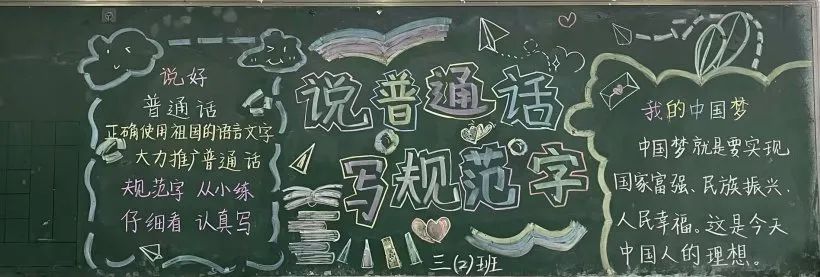 说好
普通话
正确使用祖国的语言文字
大力推广普通话
规范字 从小练
仔细看 认真写
说普通话
写规范字
三(2)班
我的中国梦
中国梦就是要实现
国家富强、民族振兴、
人民幸福。这是今天
中国人的理想。